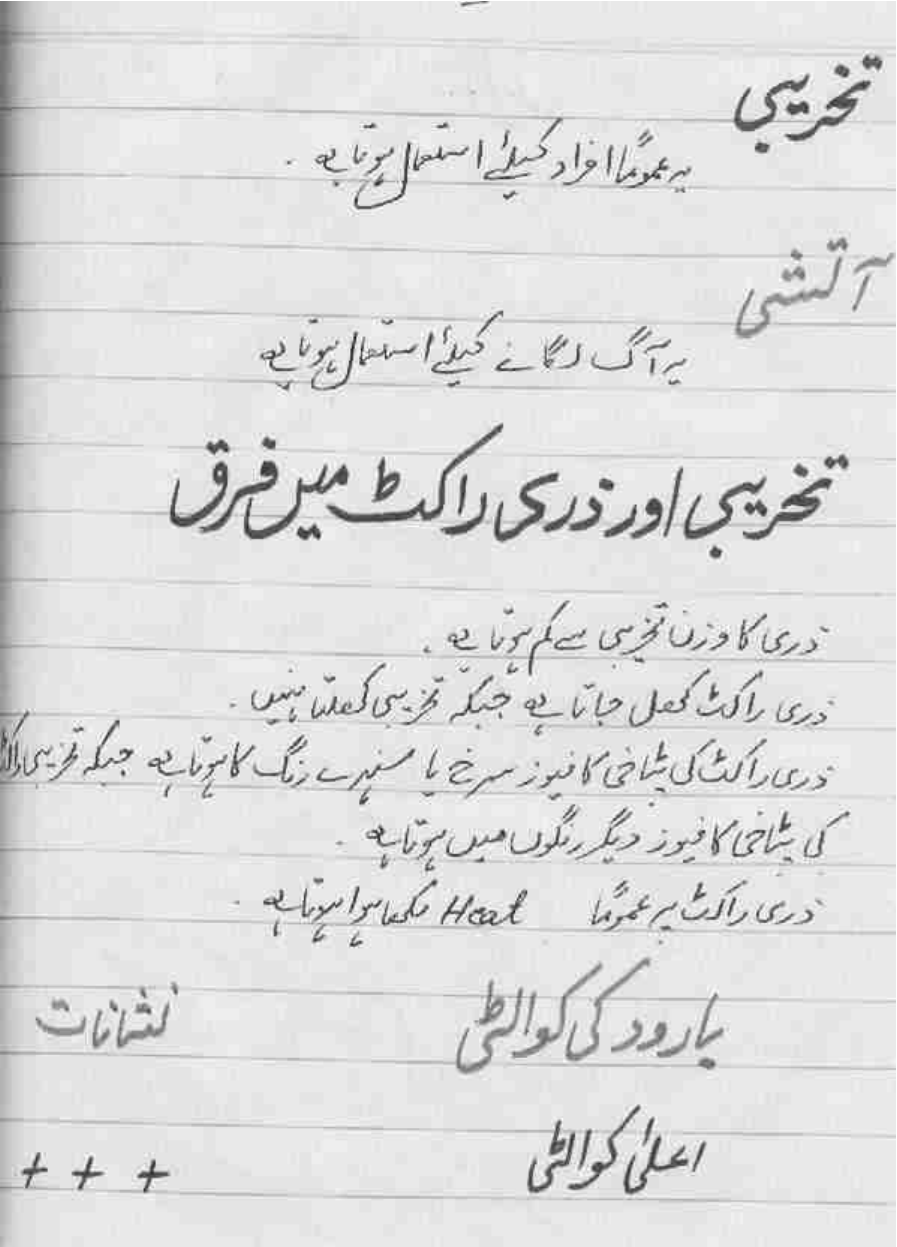 تخریبی
یہ عموماً افراد کیلئے استعمال ہوتا ہے ۔
آتشی
یہ آگ لگانے کیلئے استعمال ہوتا ہے
تخریبی اور ذری راکٹ میں فرق
ذری کا وزن تخریبی سے کم ہوتا ہے ۔
ذری راکٹ کھل جاتا ہے جبکہ تخریبی کھلتا نہیں ۔
ذری راکٹ کی پٹاخی کا فیوز سرخ یا سنہرے رنگ کا ہوتا ہے جبکہ تخریبی راکٹ
کی پٹاخی کا فیوز دیگر رنگوں میں ہوتا ہے ۔
ذری راکٹ پر عموماً Heat لکھا ہوا ہوتا ہے ۔
بارود کی کوالٹی نشانات
اعلیٰ کوالٹی + + +